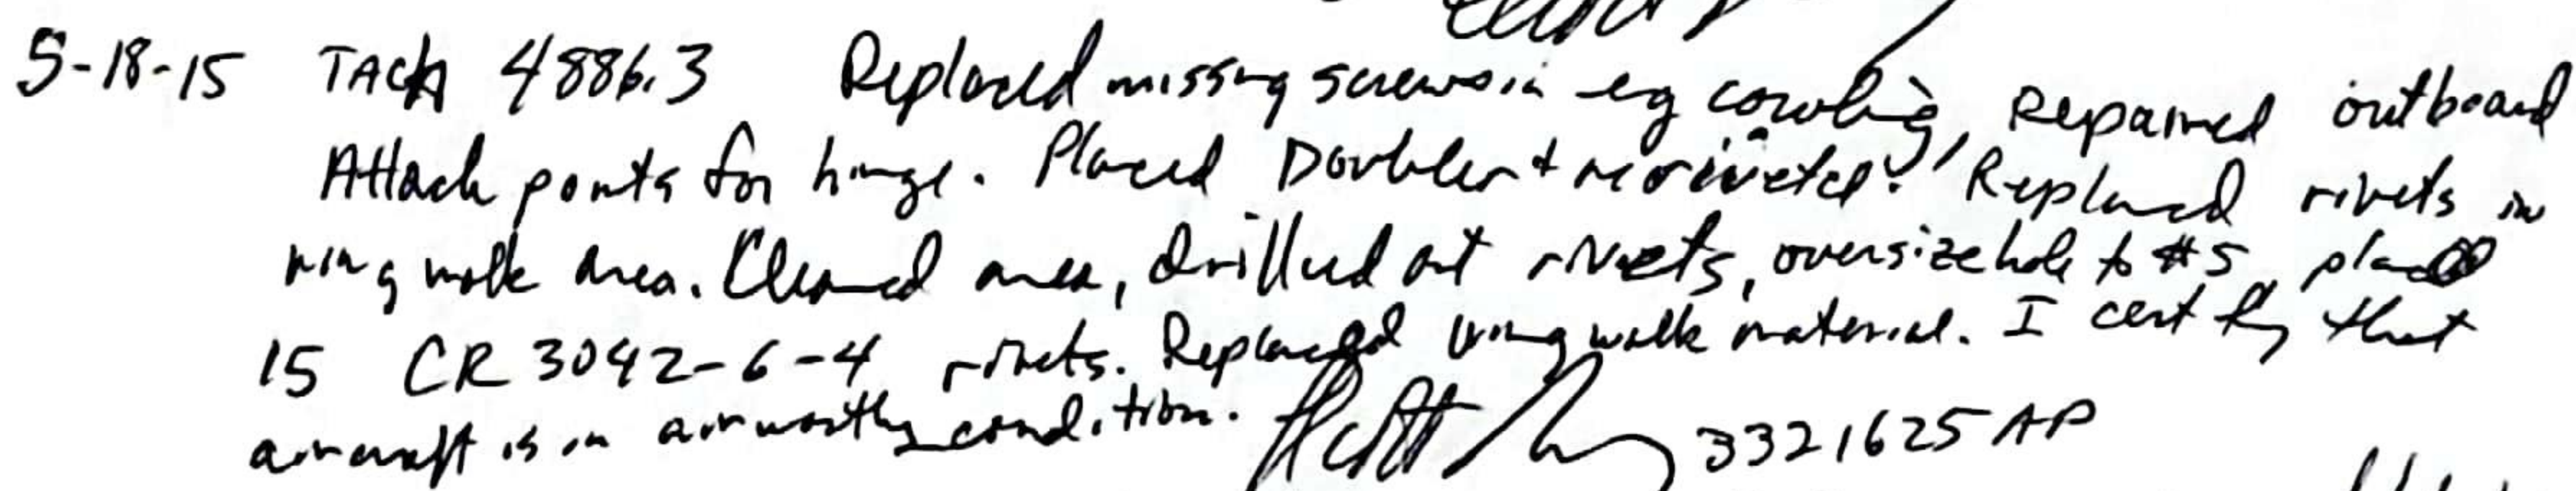 5-18-15 TACH 4886.3 Replaced missing screws in eng cowling, Repaired outboard
Attach points for hinge. Placed Doubler + reriveted. Replaced rivets in
wing walk area. Cleaned area, drilled out rivets, oversize hole to #5, placed
15 CR 3042-6-4 rivets. Replaced wing walk material. I certify that
aircraft is in airworthy condition. 3321625 AP